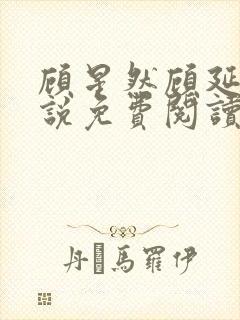 顾星然顾延
說免費閱讀
丹�馬羅伊